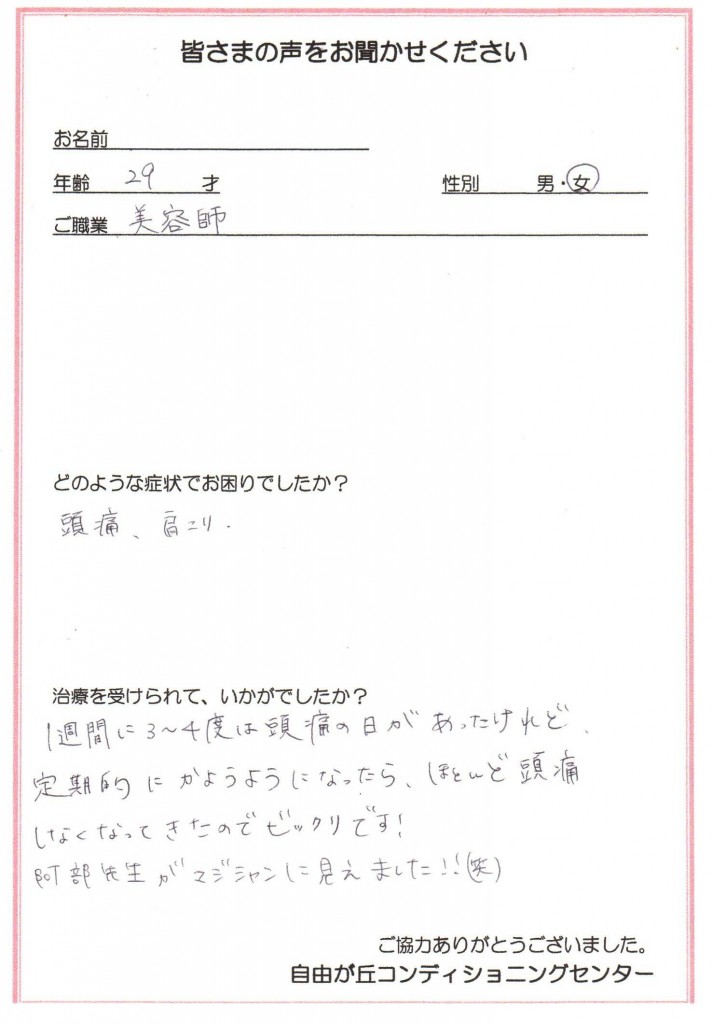 皆さまの声をお聞かせください
お名前
年齢 29 才 性別 男・女
ご職業 美容師
どのような症状でお困りでしたか?
頭痛、肩こり.
治療を受けられて、いかがでしたか?
1週間に3〜4度は頭痛の日があったけれど、
定期的にかようようになったら、ほとんど頭痛
しなくなってきたのでビックリです!
阿部先生がマジシャンに見えました!!(笑)
ご協力ありがとうございました。
自由が丘コンディショニングセンター